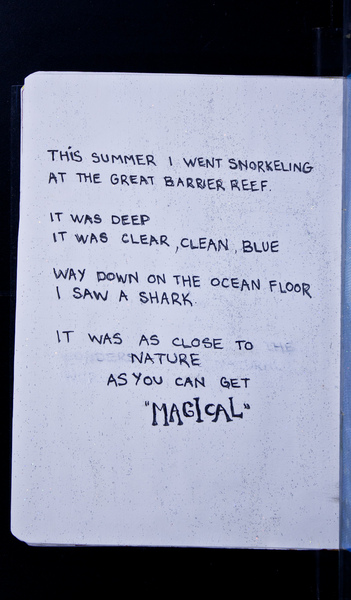 THIS SUMMER I WENT SNORKELING
AT THE GREAT BARRIER REEF.
IT WAS DEEP
IT WAS CLEAR, CLEAN, BLUE
WAY DOWN ON THE OCEAN FLOOR
I SAW A SHARK.
IT WAS AS CLOSE TO
NATURE
AS YOU CAN GET
"MAGICAL"